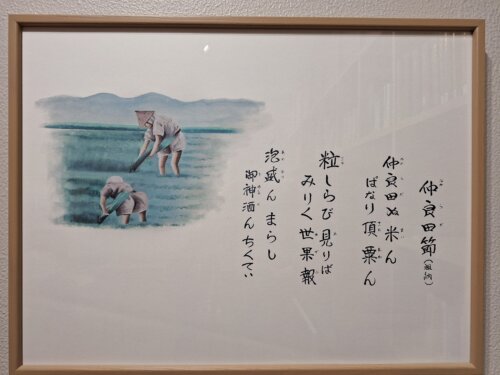 仲良田節
仲良田ぬ米ん
ばなり頂粟ん
粒しらび見りば
みりく世果報
泡盛ん まらし
御神酒ん ちくてぃ